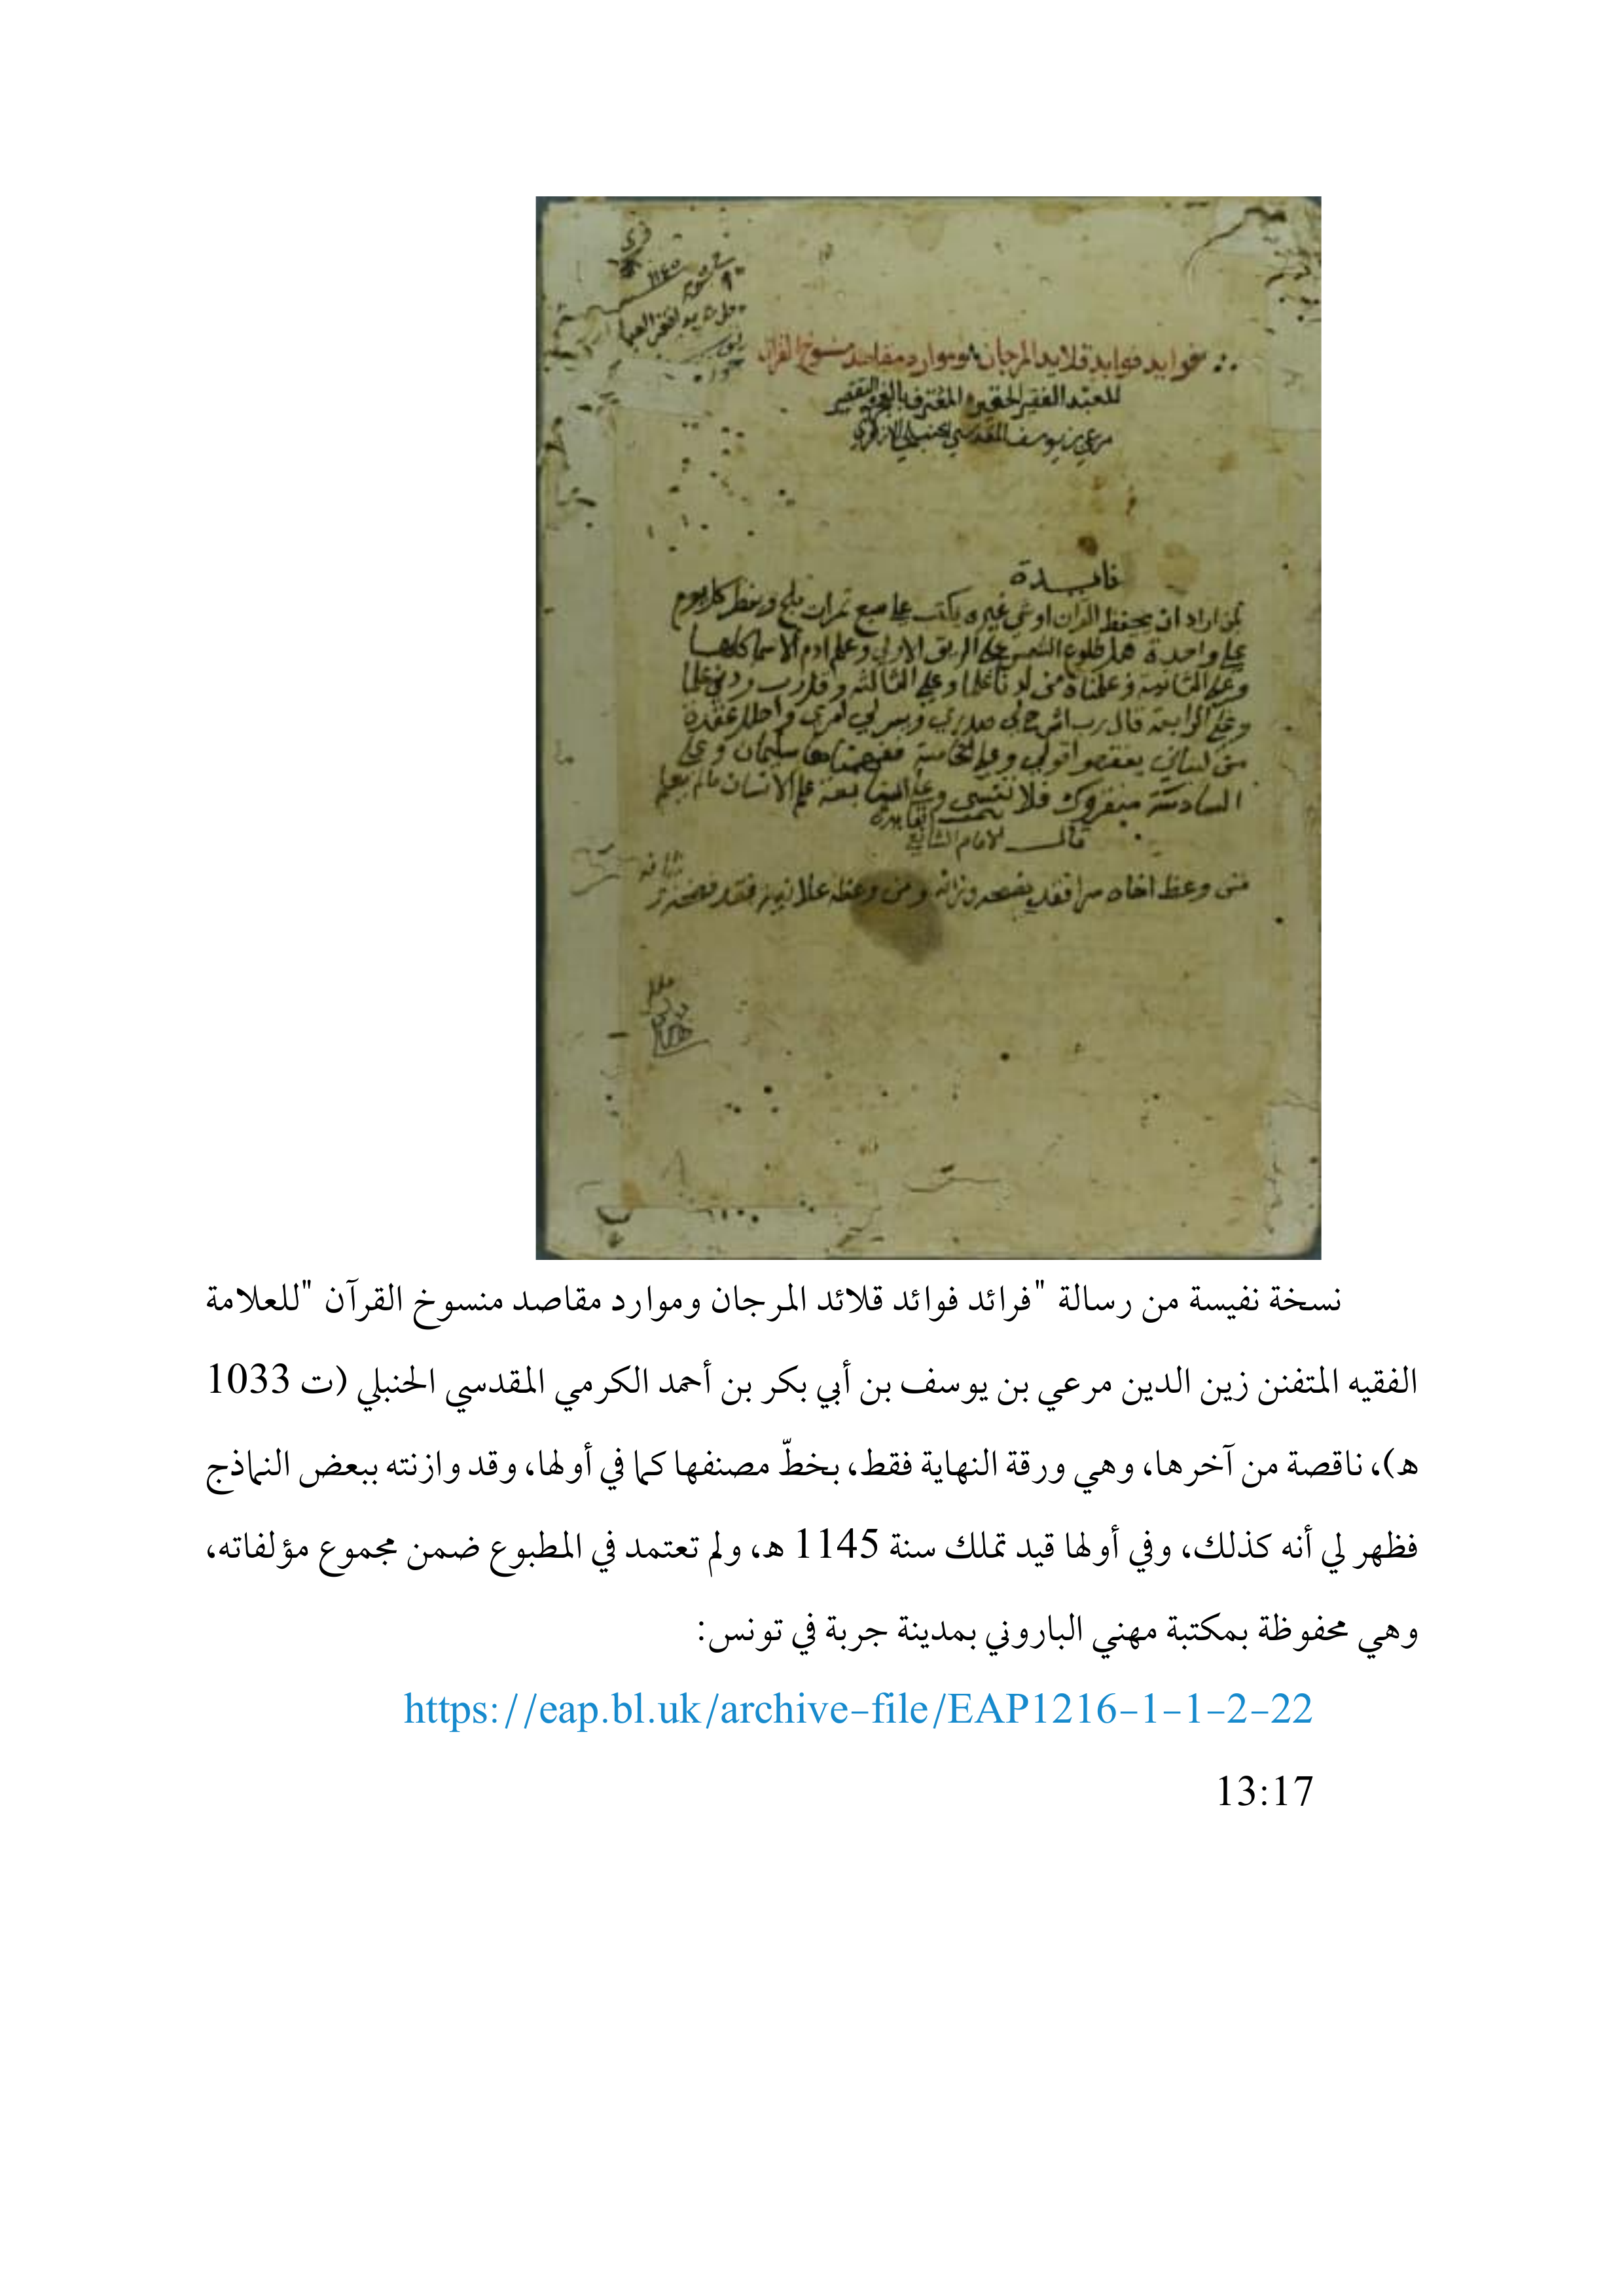 فوايد قلايد المرجان وموارد مقاصد منسوخ القران
للعبد الفقير الحقير المعترف بالعجز والتقصير
مرعي بن يوسف المقدسي الحنبلي الازهري
فايدة
لمن اراد ان يحفظ القران او شي غيره يكتب على سبع تمرات ويفطر كل يوم
على واحدة قبل طلوع الشمس على الريق الاولى وعلم ادم الاسما كلها
وعلى الثانية وعلمناه من لدنا علما وعلى الثالثة وقل رب زدني علما
وعلى الرابعة قال رب اشرح لي صدري ويسر لي امري واحلل عقدة
من لساني يفقهوا قولي وعلى الخامسة ففهمناها سليمان وعلى
السادسة سنقروك فلا تنسى وعلى السابعة علم الانسان مالم يعلم
قال الامام الشافعي
من وعظ اخاه سرا فقد نصحه وزانه ومن وعظه علانية فقد فضحه
نسخة نفيسة من رسالة "فرائد فوائد قلائد المرجان وموارد مقاصد منسوخ القرآن "للعلامة
الفقيه المتفنن زين الدين مرعي بن يوسف بن أبي بكر بن أحمد الكرمي المقدسي الحنبلي (ت 1033
ه)، ناقصة من آخرها، وهي ورقة النهاية فقط، بخطّ مصنفها كما في أولها، وقد وازنته ببعض النماذج
فظهر لي أنه كذلك، وفي أولها قيد تملك سنة 1145 ه، ولم تعتمد في المطبوع ضمن مجموع مؤلفاته،
وهي محفوظة بمكتبة مهني الباروني بمدينة جربة في تونس:
https://eap.bl.uk/archive-file/EAP1216-1-1-2-22
13:17